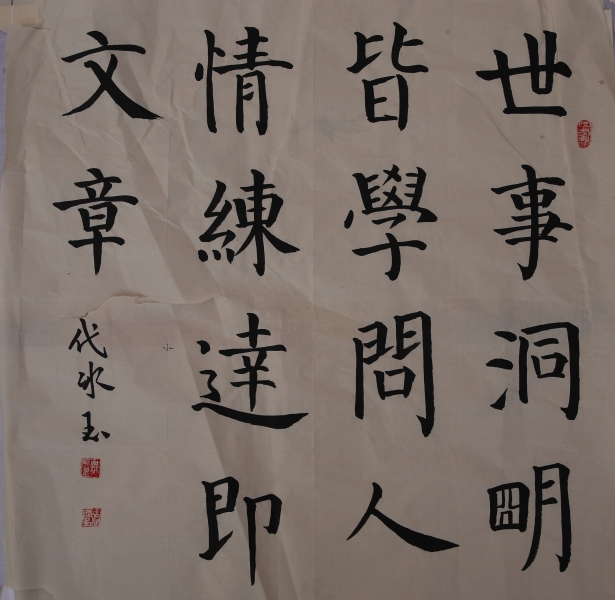 世事洞朙
皆學問人
情練達即
文章
代冰玉